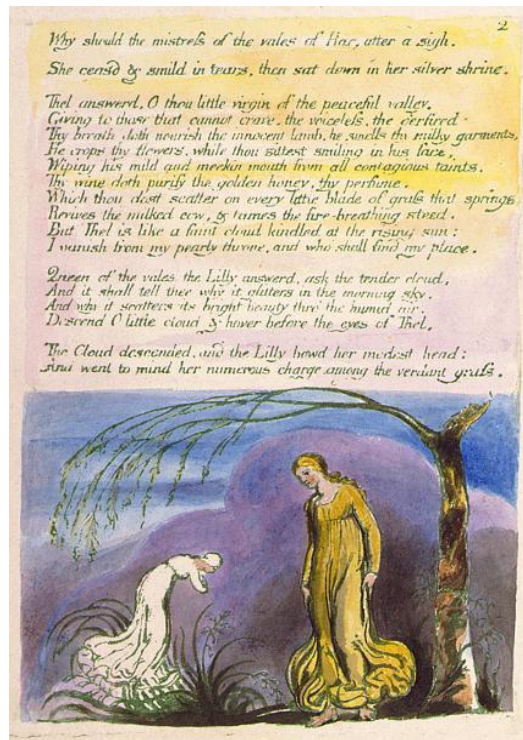 2
Why should the mistress of the vales of Har, utter a sigh.
She ceasd & smild in tears, then sat down in her silver shrine.
Thel answerd, O thou little virgin of the peaceful valley.
Giving to those that cannot crave, the voiceless, the o'erfired
Thy breath doth nourish the innocent lamb, he smells thy milky garments,
He crops thy flowers, while thou sittest smiling in his face,
Wiping his mild and meekin mouth from all contagious taints.
Thy wine doth purify the golden honey, thy perfume,
Which thou dost scatter on every little blade of grass that springs
Revives the milked cow, & tames the fire-breathing steed.
But Thel is like a faint cloud kindled at the rising sun:
I vanish from my pearly throne, and who shall find my place.
Queen of the vales the Lilly answerd, ask the tender cloud,
And it shall tell thee why it glitters in the morning sky.
And why it scatters its bright beauty thro' the humid air.
Descend O little cloud & hover before the eyes of Thel.
The Cloud descended, and the Lilly bowd her modest head:
And went to mind her numerous charge among the verdant grass.